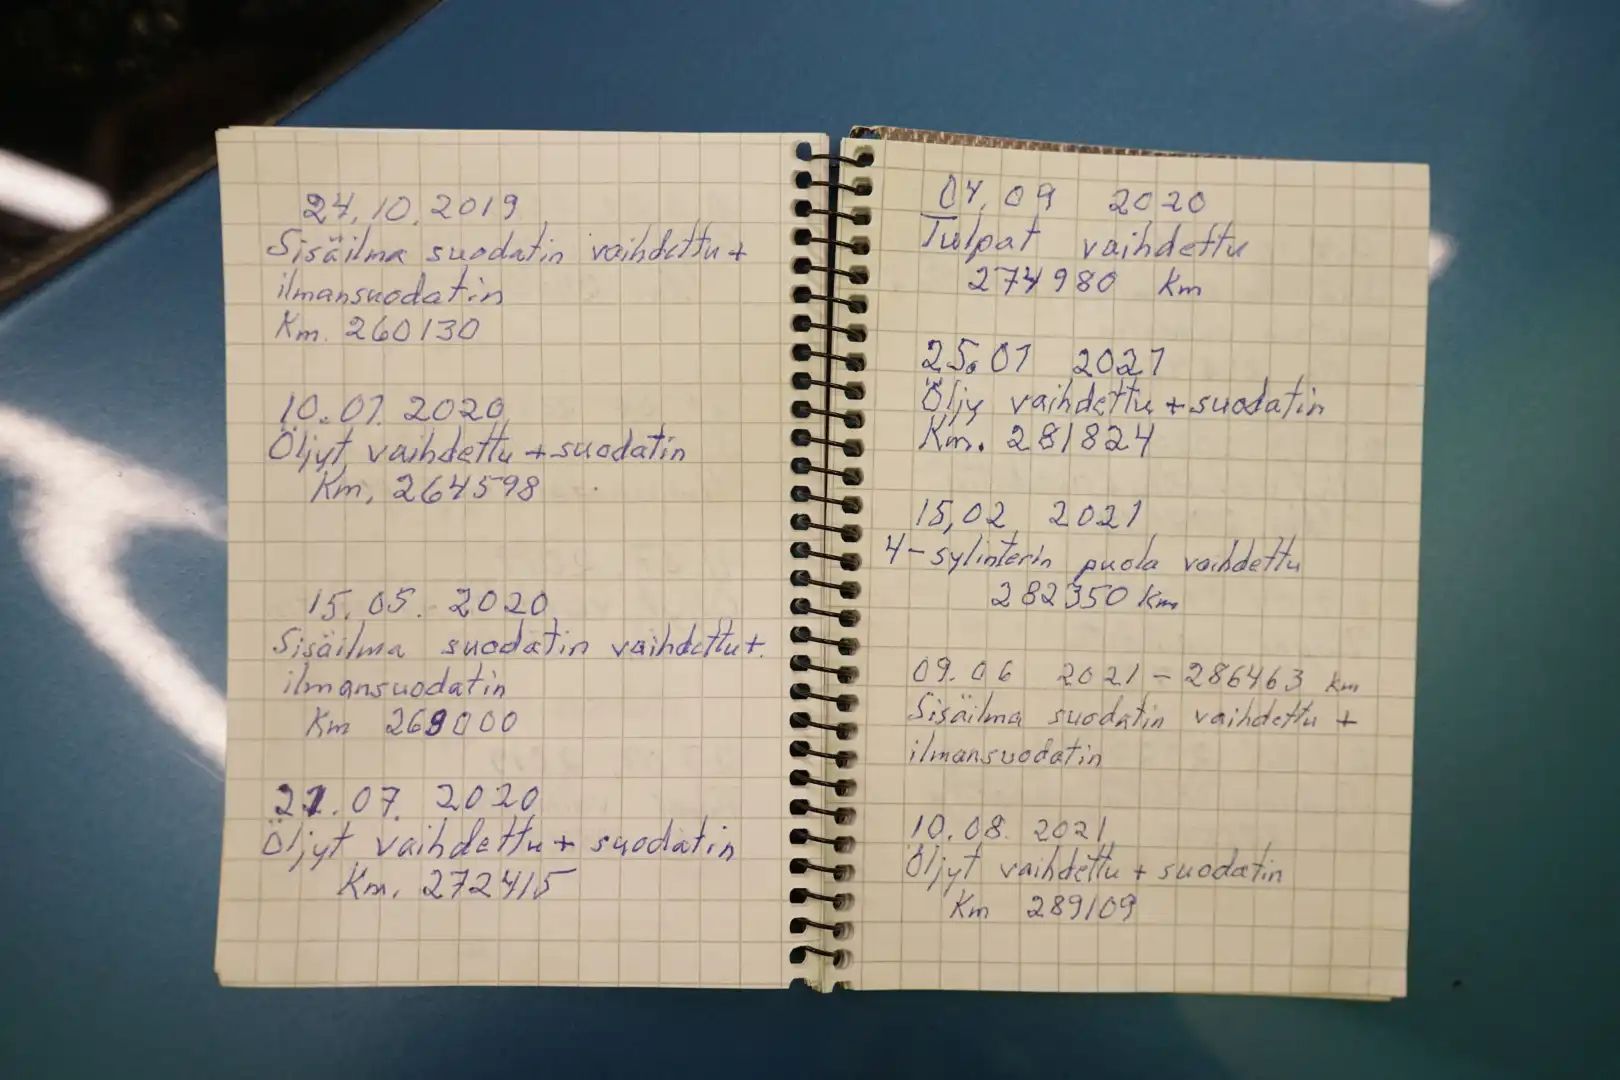 24.10.2019
Sisäilma suodatin vaihdettu +
ilmansuodatin
Km. 260130
10.01.2020
Öljyt vaihdettu + suodatin
Km. 264598
15.05.2020
Sisäilma suodatin vaihdettu +
ilmansuodatin
Km 269000
21.07.2020
Öljyt vaihdettu + suodatin
Km. 272415
04.09 2020
Tulpat vaihdettu
274980 Km
25.01 2021
Öljy vaihdettu + suodatin
Km. 281824
15,02 2021
4-sylinterin puola vaihdettu
282350 Km
09.06 2021 - 286463 km
Sisäilma suodatin vaihdettu +
ilmansuodatin
10.08.2021
Öljyt vaihdettu + suodatin
Km 289109